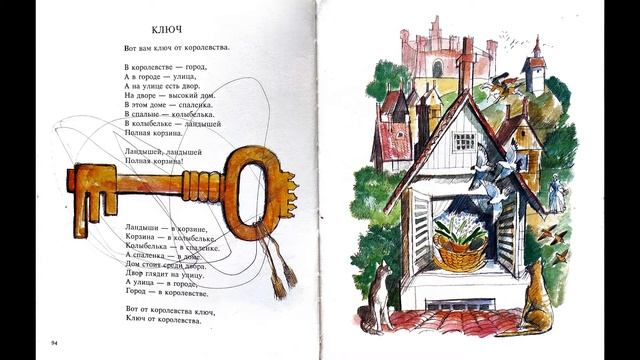 КЛЮЧ
Вот вам ключ от королевства.
В королевстве — город,
А в городе — улица,
А на улице есть двор.
На дворе — высокий дом.
В этом доме — спаленка.
В спальне — колыбелька.
В колыбельке — ландышей
Полная корзина.
Ландышей, ландышей
Полная корзина!
Ландыши — в корзине,
Корзина — в колыбельке.
Колыбелька — в спаленке.
А спаленка — в доме.
Дом стоит среди двора.
Двор глядит на улицу.
А улица — в городе,
Город — в королевстве.
Вот от королевства ключ,
Ключ от королевства.
94